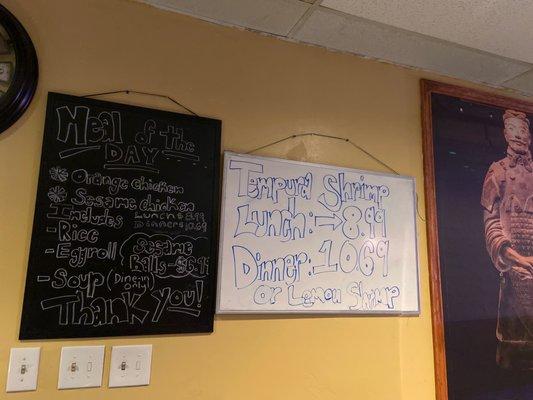 Meal of the
DAY
Orange chicken
Sesame chicken
Includes Lunch 8.99
Dinner 10.69
-Rice
-Eggroll
(Sesame
Balls
-Soup (Dinein
only)
Thank You!
Tempura Shrimp
Lunch:→8.99
Dinner:10.69
or Lemon Shrimp